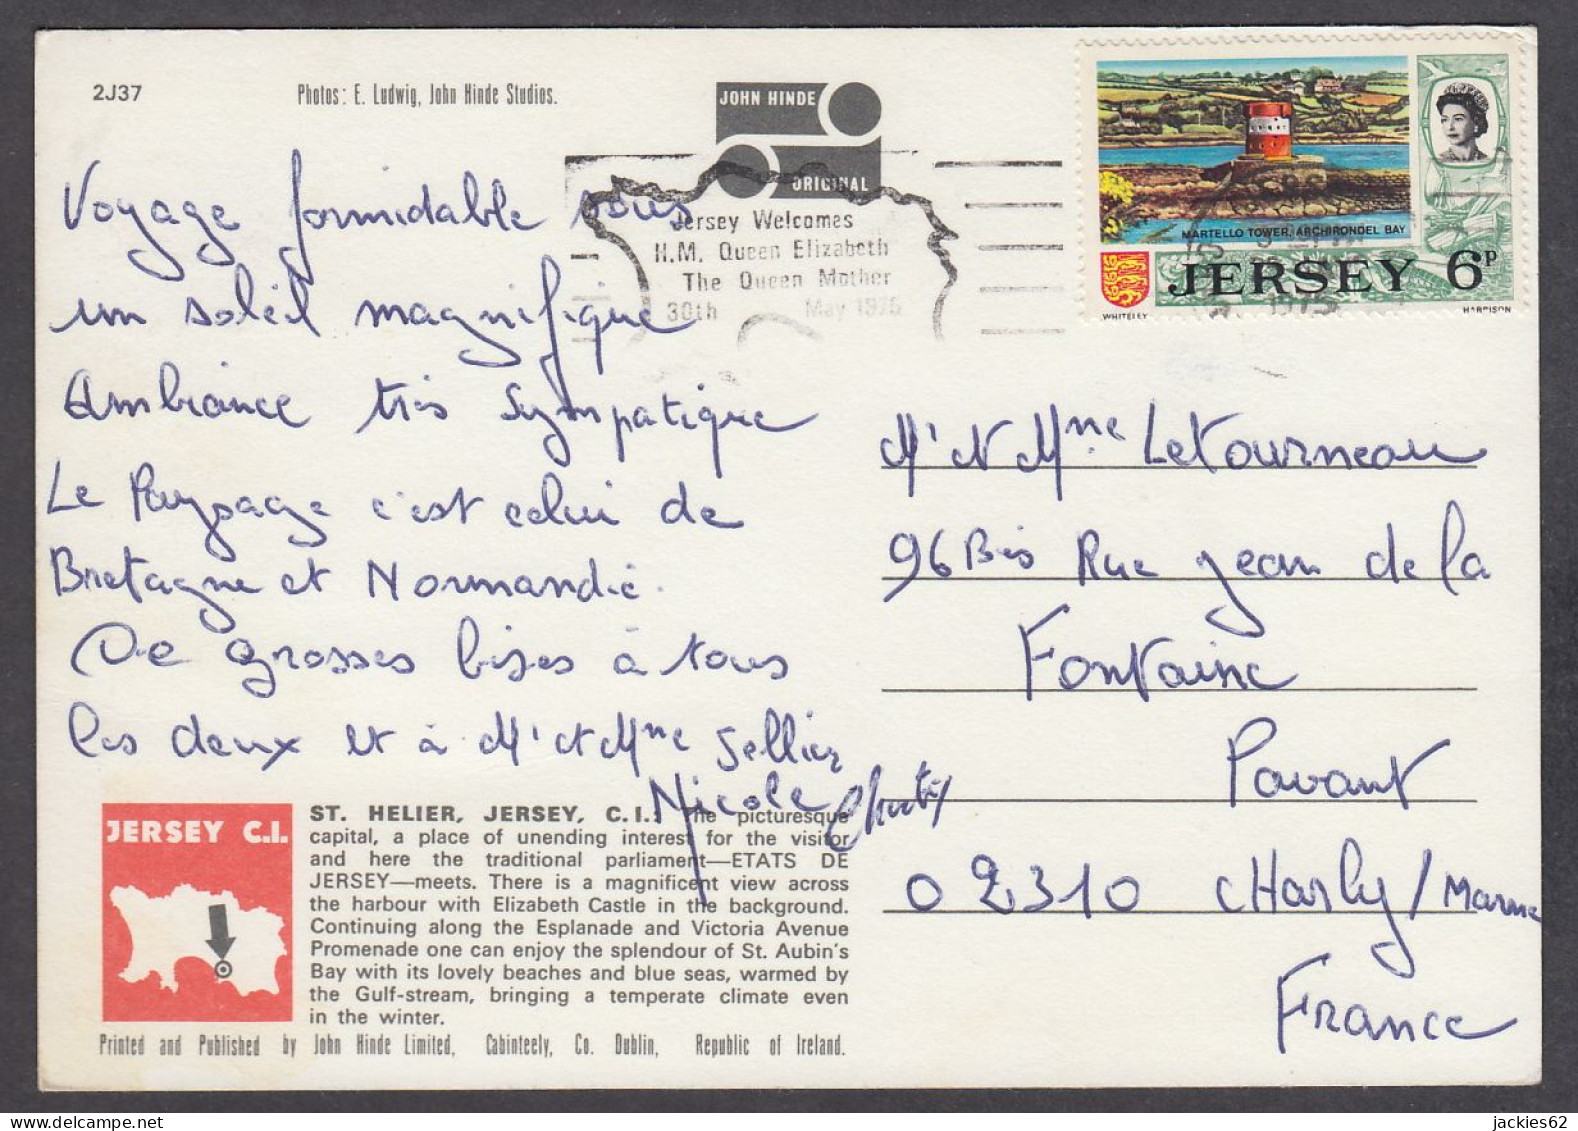 2J37
Photos: E. Ludwig, John Hinde Studios.
JOHN HINDE
ORIGINAL
Jersey Welcomes
H.M. Queen Elizabeth
The Queen Mother
30th May 1975
MARTELLO TOWER, ARCHIRONDEL BAY
JERSEY 6P
WHITELEY HARRISON
1975
Voyage formidable sous
un soleil magnifique
Ambiance très sympatique
Le Paysage c'est celui de
Bretagne et Normandie.
De grosses bises à tous
les deux et à Mr et Mme Sellier
Nicole
Mr et Mme Letourneau
96 Bis Rue Jean de la
Fontaine
Pavant
02310 CHarly/Marne
France
JERSEY C.I.
ST. HELIER, JERSEY, C.I.: The picturesque
capital, a place of unending interest for the visitor
and here the traditional parliament—ETATS DE
JERSEY—meets. There is a magnificent view across
the harbour with Elizabeth Castle in the background.
Continuing along the Esplanade and Victoria Avenue
Promenade one can enjoy the splendour of St. Aubin's
Bay with its lovely beaches and blue seas, warmed by
the Gulf-stream, bringing a temperate climate even
in the winter.
Printed and Published by John Hinde Limited, Cabinteely, Co. Dublin, Republic of Ireland.
jackies62